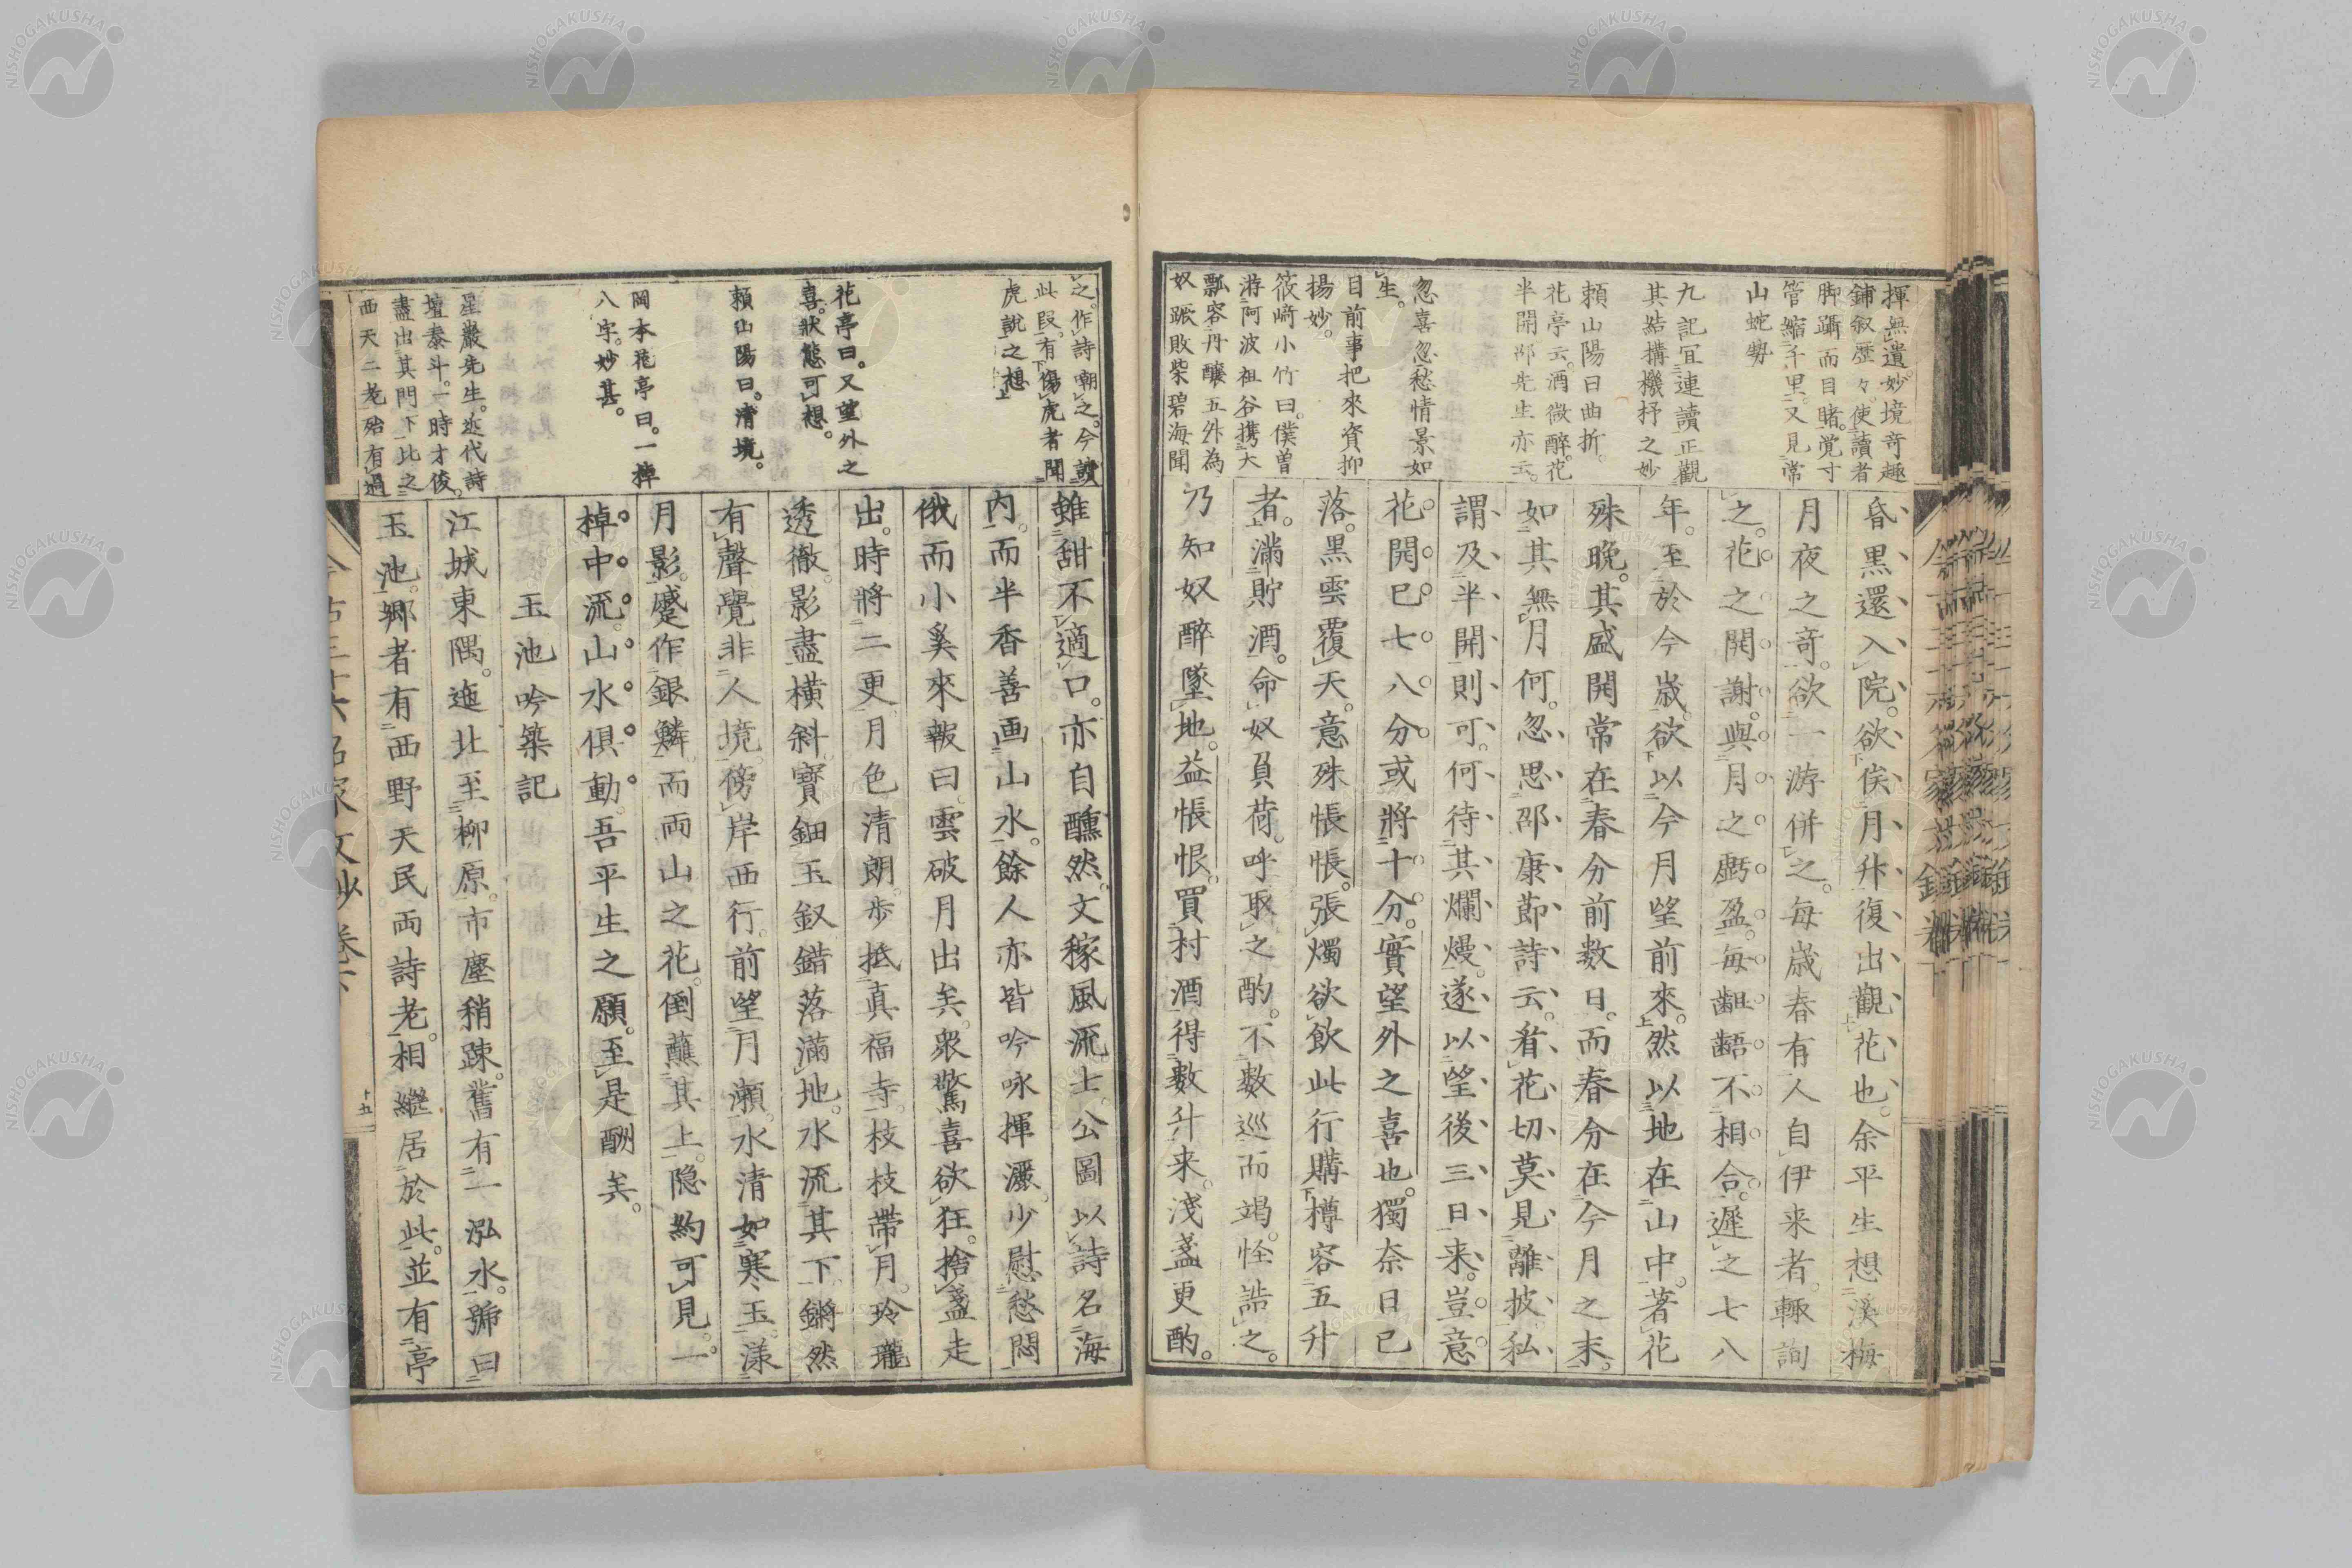 揮無遺。妙境奇趣
鋪叙歷々。使讀者
脚躡而目睹。覚寸
管縮千里。又見常
山蛇勢
九記宜連讀正觀
其結構機抒之妙
頼山陽曰曲折。
花亭云。酒微醉。花
半開邵先生亦云。
忽喜忽愁情景如
生。
目前事把來資抑
揚妙。
筱﨑小竹曰。僕曽
游阿波祖谷携大
瓢容丹釀五升為
奴蹶敗柴碧海聞
昏黒還入院。欲俟月升復出觀花也。余平生想溪梅
月夜之奇。欲一游併之。毎歳春有人自伊来者。輙詢
之。花之開謝。與月之虧盈。毎齟齬不相合。遲之七八
年。至於今歳。欲以今月望前來。然以地在山中。著花
殊晩。其盛開常在春分前数日。而春分在今月之末。
如其無月何。忽思邵康節詩云。看花切莫見離披。私
謂及半開則可。何待其爛熳。遂以望後三日来。豈意
花開已七八分。或將十分。實望外之喜也。獨奈日已
落。黒雲覆天。意殊悵悵。張燭欲飲此行購樽容五升
者。滿貯酒。命奴負荷。呼取之酌。不数巡而竭。怪詰之。
乃知奴醉墜地。益悵恨。買村酒得數升来。淺盞更酌。
之。作詩嘲之。今讀
此段。有傷虎者聞
虎說之想
花亭曰。又望外之
喜。狀態可想。
頼山陽曰。清境。
岡本花亭曰。一棹
八字。妙甚。
星巖先生。近代詩
壇泰斗。一時才俊。
盡出其門下比之
西天二老殆有過
雖甜不適口。亦自醺然。文稼風流士。公圖以詩名海
内。而半香善画山水。餘人亦皆吟咏揮灑。少慰愁悶
俄而小奚來報曰。雲破月出矣。衆驚喜欲狂。捨盞走
出。時將二更月色清朗。歩抵真福寺。枝枝帶月。玲瓏
透徹。影盡横斜。寶鈿玉釵錯落滿地。水流其下。鏘然
有聲覺非人境。傍岸西行。前望月瀬。水清如寒玉。漾
月影。蹙作銀鱗。而両山之花。倒蘸其上。隠約可見。一
棹中流。山水倶動。吾平生之願。至是酬矣。
玉池吟築記
江城東隅。迤北至柳原。市塵稍踈。舊有一泓水。號曰
玉池。郷者有西野天民両詩老。相繼居於此。並有亭
十五